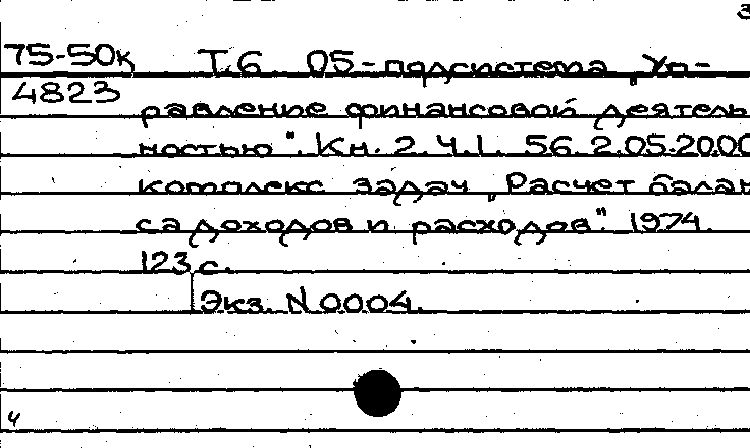 3
75-50к Т.6 05-подсистема „Уп-
4823 равление финансовой деятель
ностью". Кн. 2. Ч.1. 56.2.05.2000
комплекс задач „Расчет балан
са доходов и расходов". 1974.
123 с.
Экз. N 0004.
4